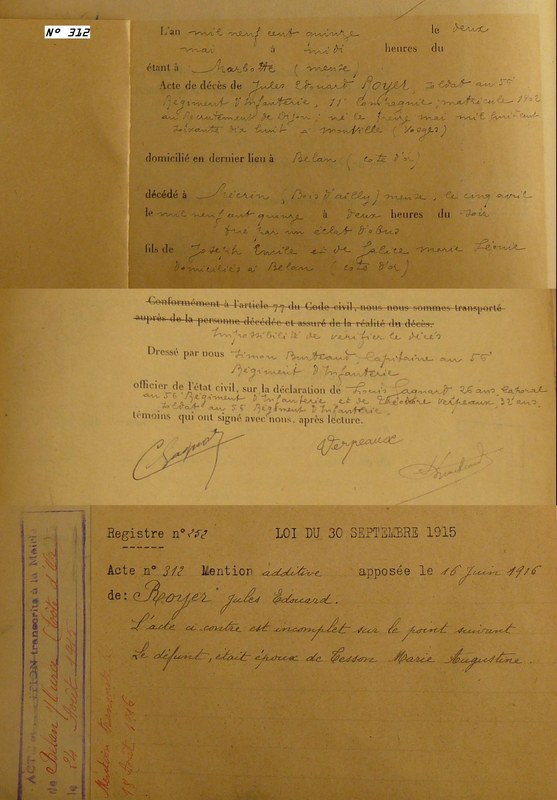 N° 312
L'an mil neuf cent quinze le deux
mai à midi heures du
étant à Marbotte (meuse)
Acte de décès de Jules Edouard Royer, soldat au 56
Régiment d'Infanterie, 11e Compagnie, matricule
au recrutement de Dijon; né le treize mai mil huit cent
soixante dix huit à (Vosges)
domicilié en dernier lieu à Belan (côte d'or)
décédé à (Bois d'ailly) meuse, le cinq avril
le mil neuf cent quinze à deux heures du soir
tué par un éclat d'obus
fils de Joseph Emile et de Galice marie Léonie
domiciliés à Belan (côte d'or)
Conformément à l'article 77 du Code civil, nous nous sommes transporté
auprès de la personne décédée et assuré de la réalité du décès.
Impossibilité de vérifier le décès
Dressé par nous Simon Capitaine au 56
Régiment d'Infanterie
officier de l'état civil, sur la déclaration de Louis Gagnard 26 ans caporal
au 56 Régiment d'Infanterie et de Théodore Verpeaux 32 ans,
soldat au 56 Régiment d'Infanterie,
témoins qui ont signé avec nous, après lecture.
Verpeaux
Registre n° 252 LOI DU 30 SEPTEMBRE 1915
Acte n° 312 Mention additive apposée le 16 Juin 1916
de: Royer Jules Edouard.
L'acte ci contre est incomplet sur le point suivant
Le défunt, était époux de Tesson Marie Augustine.
transcrits à la Mairie
de Belan s/ Ource (Côte d'Or)
le 24 Août
Mention
18 Août 1916